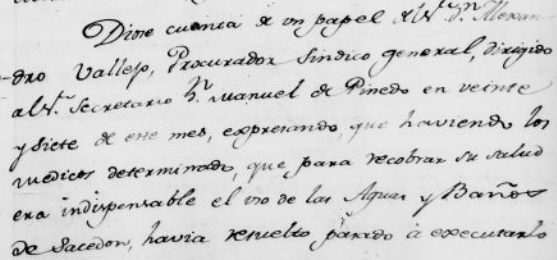 Diose cuenta de un papel del Sr. Dn. Alexan
dro Vallejo, Procurador Sindico general, dirigido
al Sr. Secretario Dn. Manuel de Pinedo en veinte
y siete de este mes, expresando, que haviendo los
medicos determinado, que para recobrar su salud
era indispensable el uso de las Aguas y Baños
de Sacedon, havia resuelto pasado à executarlo